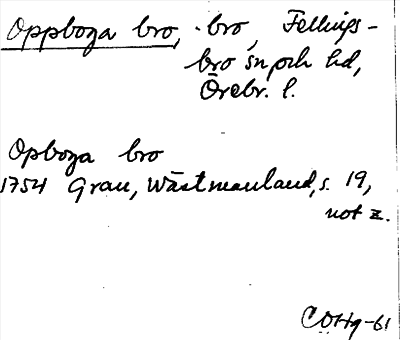 Oppboga bro, -bro, Fellings-
bro sn och hd,
Örebr. l.
Opboga bro
1754 Grau, Wästmanland, s. 19,
not z.
COHg-61